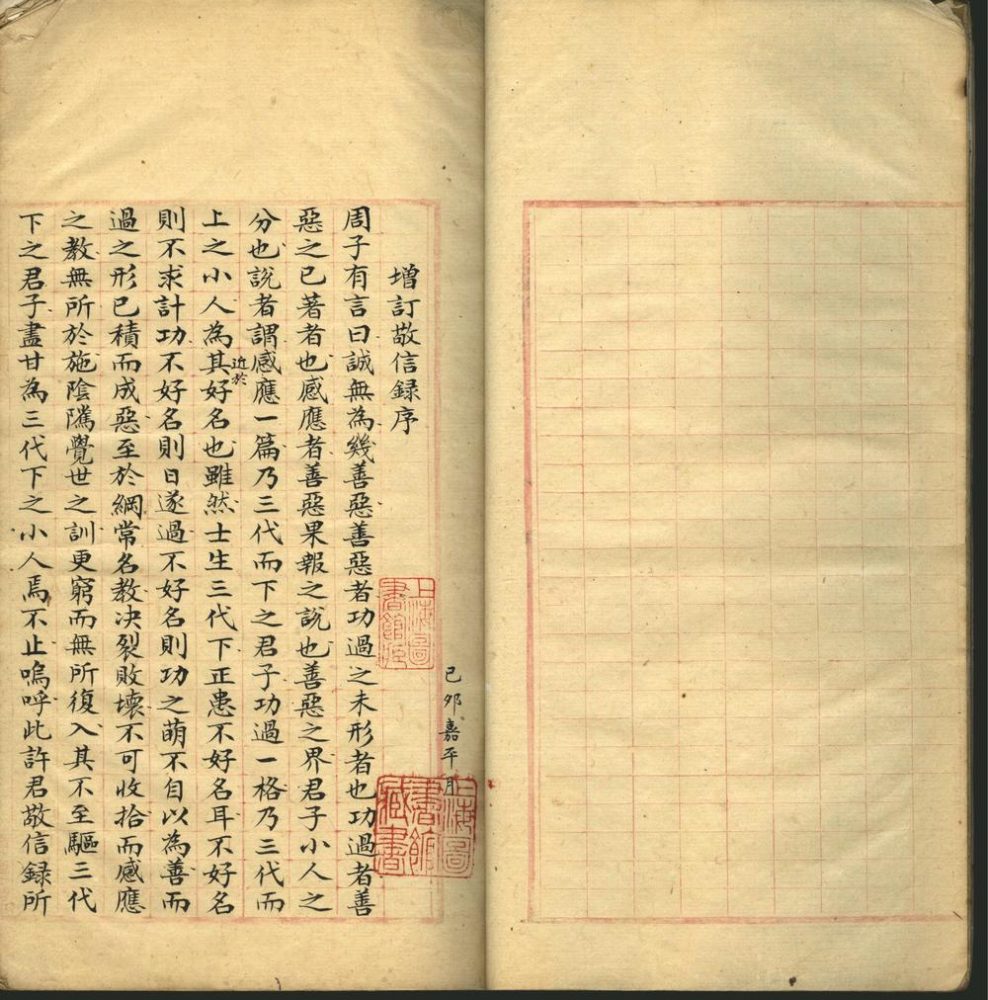 增訂敬信録序
己夘嘉平月
上海圖書館藏
上海圖書館藏書
周子有言曰誠無為幾善惡善惡者功過之未形者也功過者善
惡之已著者也感應者善惡果報之說也善惡之界君子小人之
分也說者謂感應一篇乃三代而下之君子功過一格乃三代而
上之小人為其近於好名也雖然士生三代下正患不好名耳不好名
則不求計功不好名則日遂過不好名則功之萌不自以為善而
過之形已積而成惡至於綱常名教决裂敗壞不可收拾而感應
之教無所於施陰隲覺世之訓更窮而無所復入其不至驅三代
下之君子盡甘為三代下之小人焉不止嗚呼此許君敬信録所